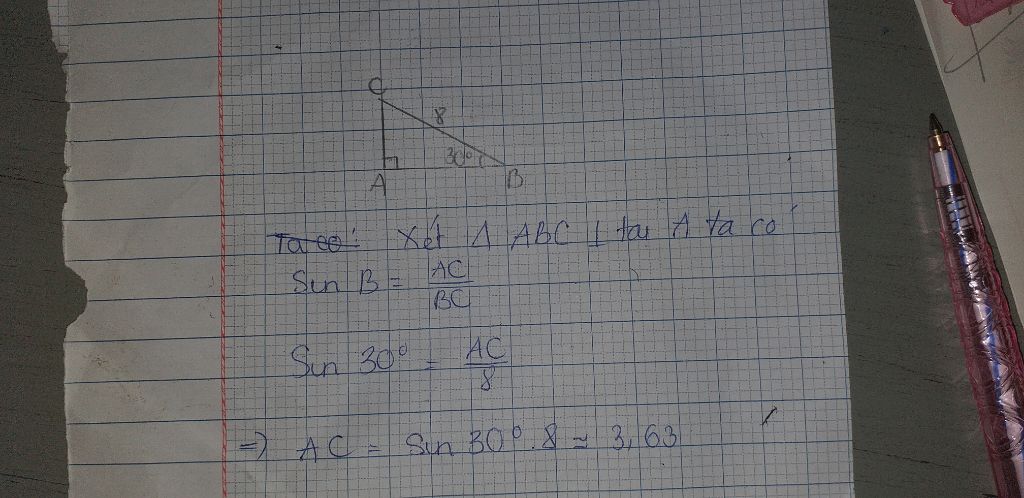 C
8
30°
A B
Ta có: Xét Δ ABC ⊥ tại A ta có
Sin B = AC/BC
Sin 30° = AC/8
=> AC = Sin 30° . 8 ≈ 3,63